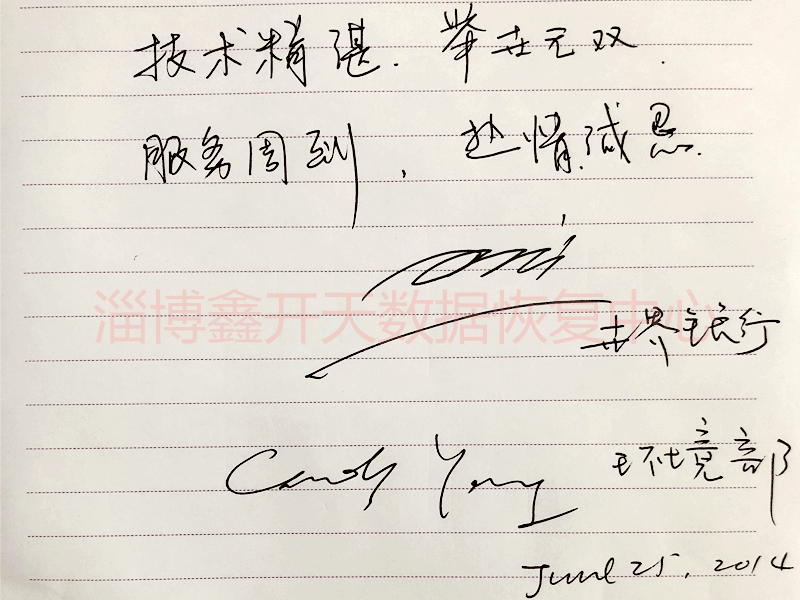 技术精湛. 举世无双.
服务周到, 热情诚恳.
淄博鑫开天数据恢复中心
世界银行
Yang 环境部
June 25, 2014